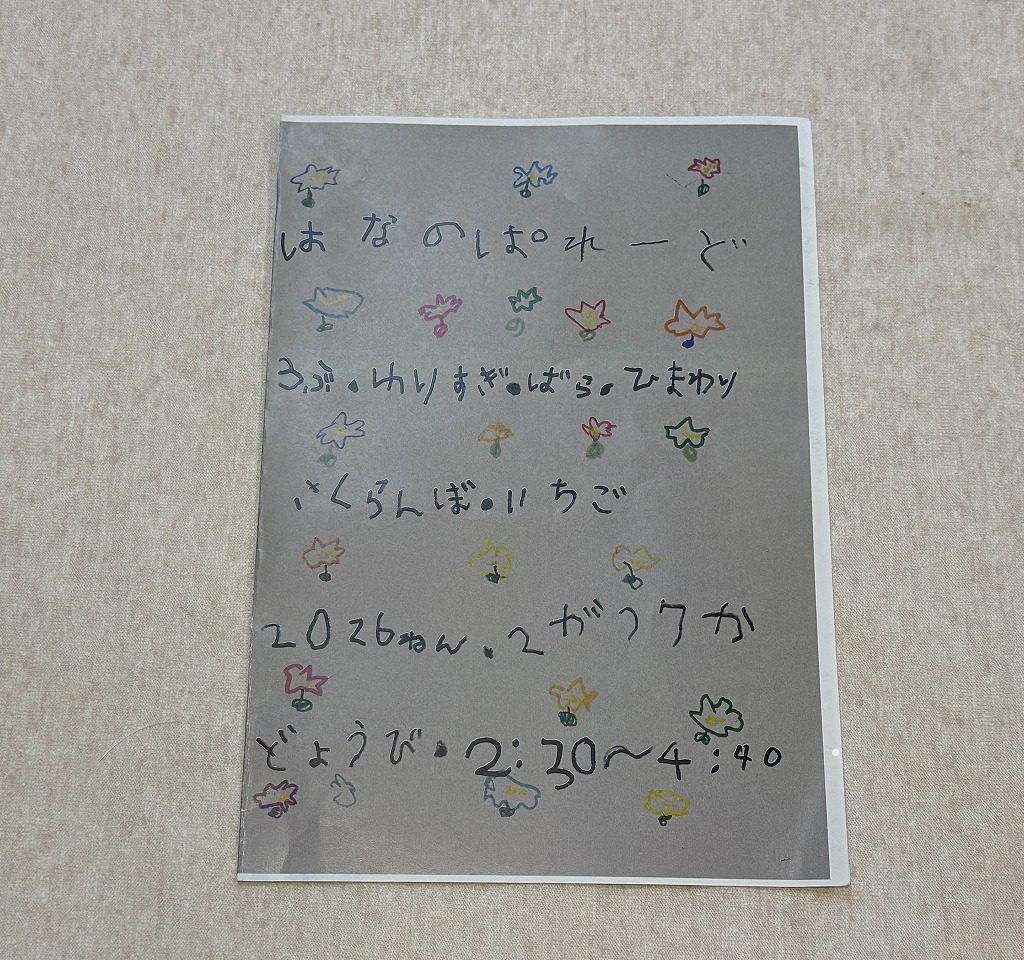 はなのぱれーど
ろぶ・ゆりすぎ・ばら・ひまわり
さくらんぼ・いちご
2026ねん・2がつ7か
どようび・2:30～4:40